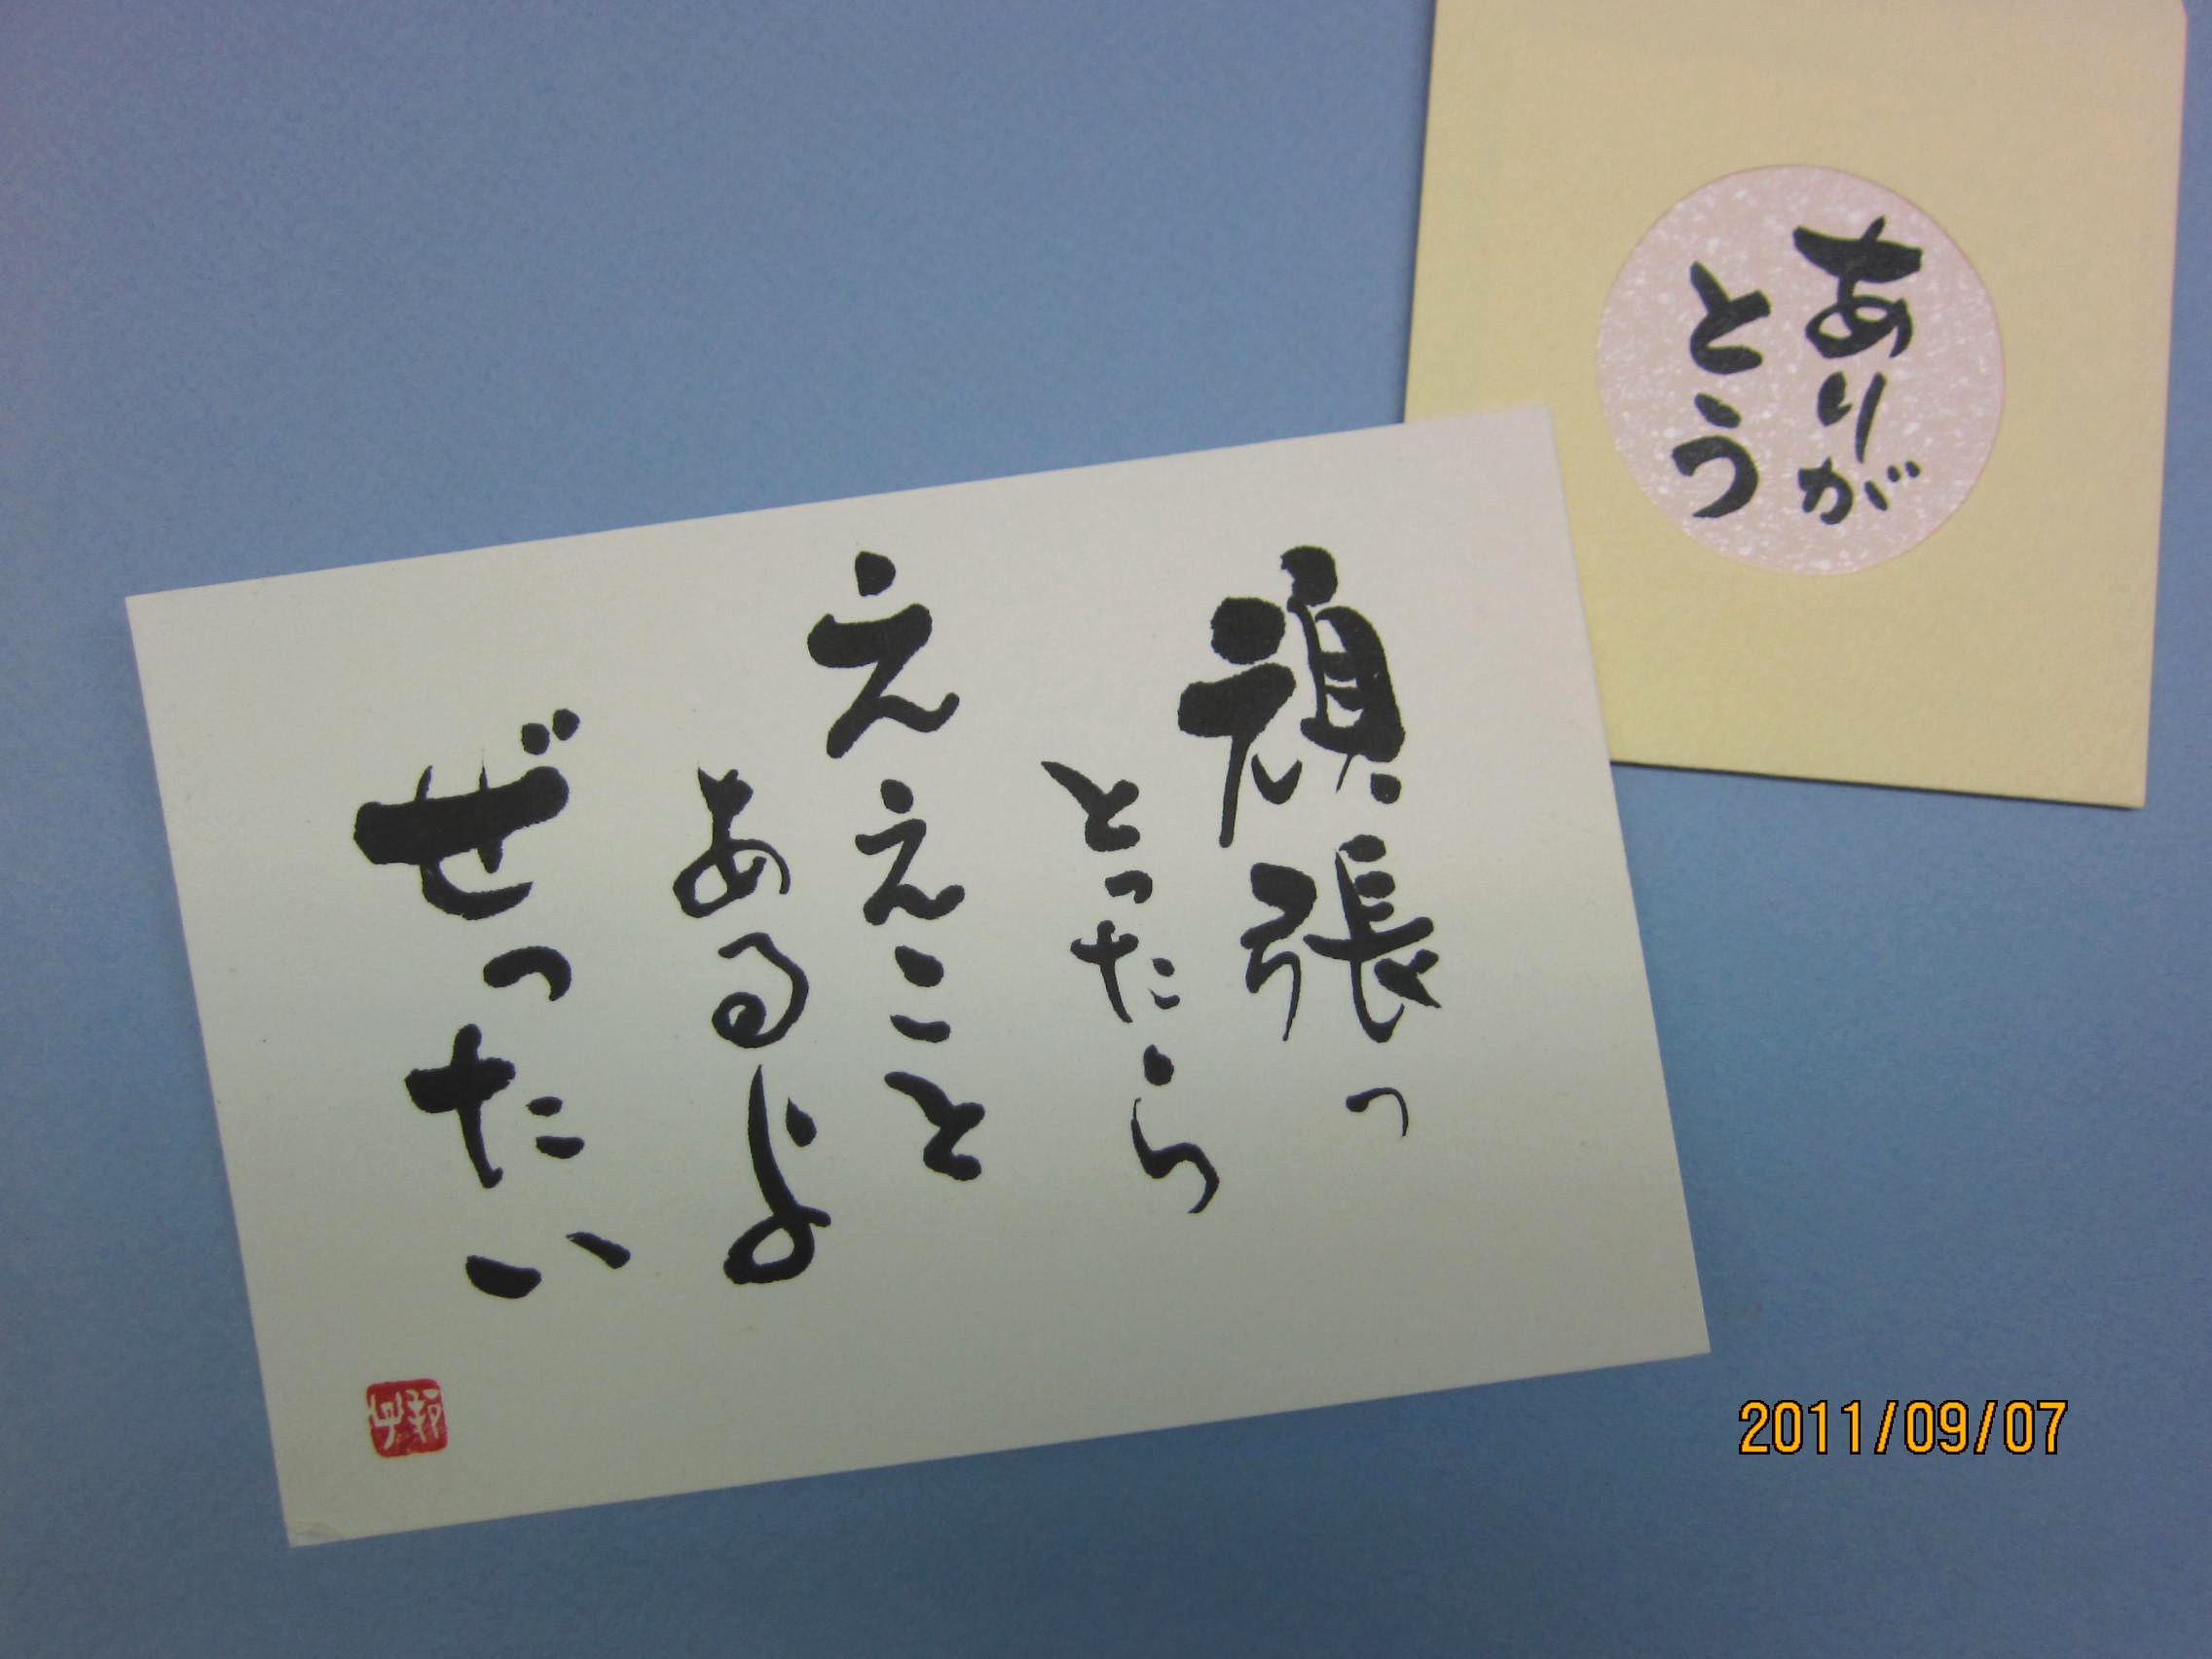 ありが
とう
頑張っ
とったら
ええこと
あるよ
ぜったい
2011/09/07